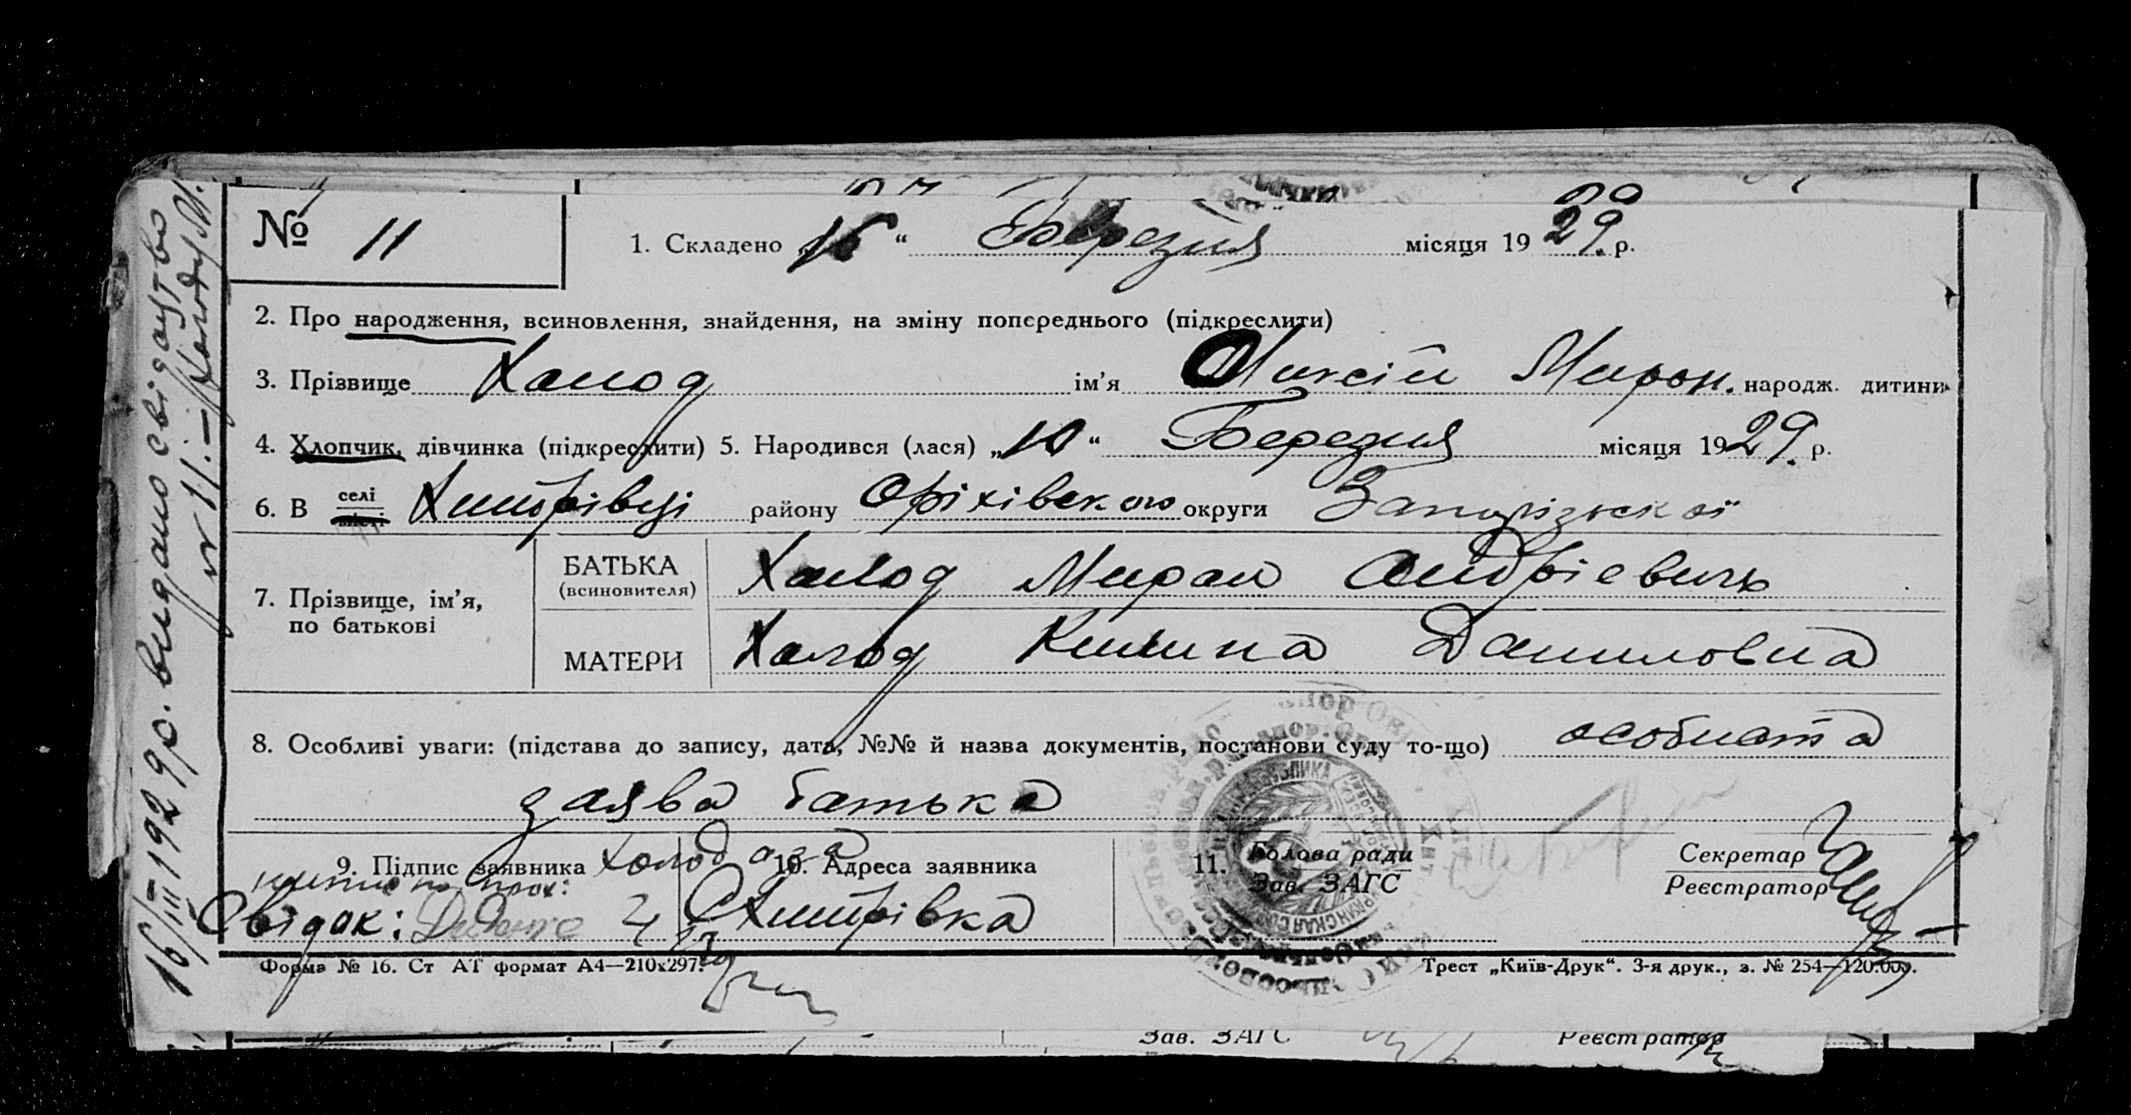 № 11
1. Складено „16“ Березня місяця 1929. р.
2. Про народження, всиновлення, знайдення, на зміну попереднього (підкреслити)
3. Прізвище Халод ім’я Мирон. народж. дитини
4. Хлопчик, дівчинка (підкреслити) 5. Народився (лася) „10“ Березня місяця 1929. р.
6. В селі місті Хитрівці району Оріхівского округи Запорізької
7. Прізвище, ім’я, по батькові
БАТЬКА (всиновителя) Халод Мирон Андрієвичь
МАТЕРИ Халод Килина Даниловна
8. Особливі уваги: (підстава до запису, дата, №№ й назва документів, постанови суду то-що) особиста
заява батька
9. Підпис заявника Холод а за
Свідок:
10. Адреса заявника
Хитрівка
11. Голова ради
Зав. ЗАГС
Секретар
Реєстратор
Форма № 16. Ст АТ формат А4—210х297.
Трест „Київ-Друк“. 3-я друк., з. № 254—120.000.
16/III 1929р. видано свідоцтво
№ 11. — Холоду М.
Зав. ЗАГС
Реєстратор